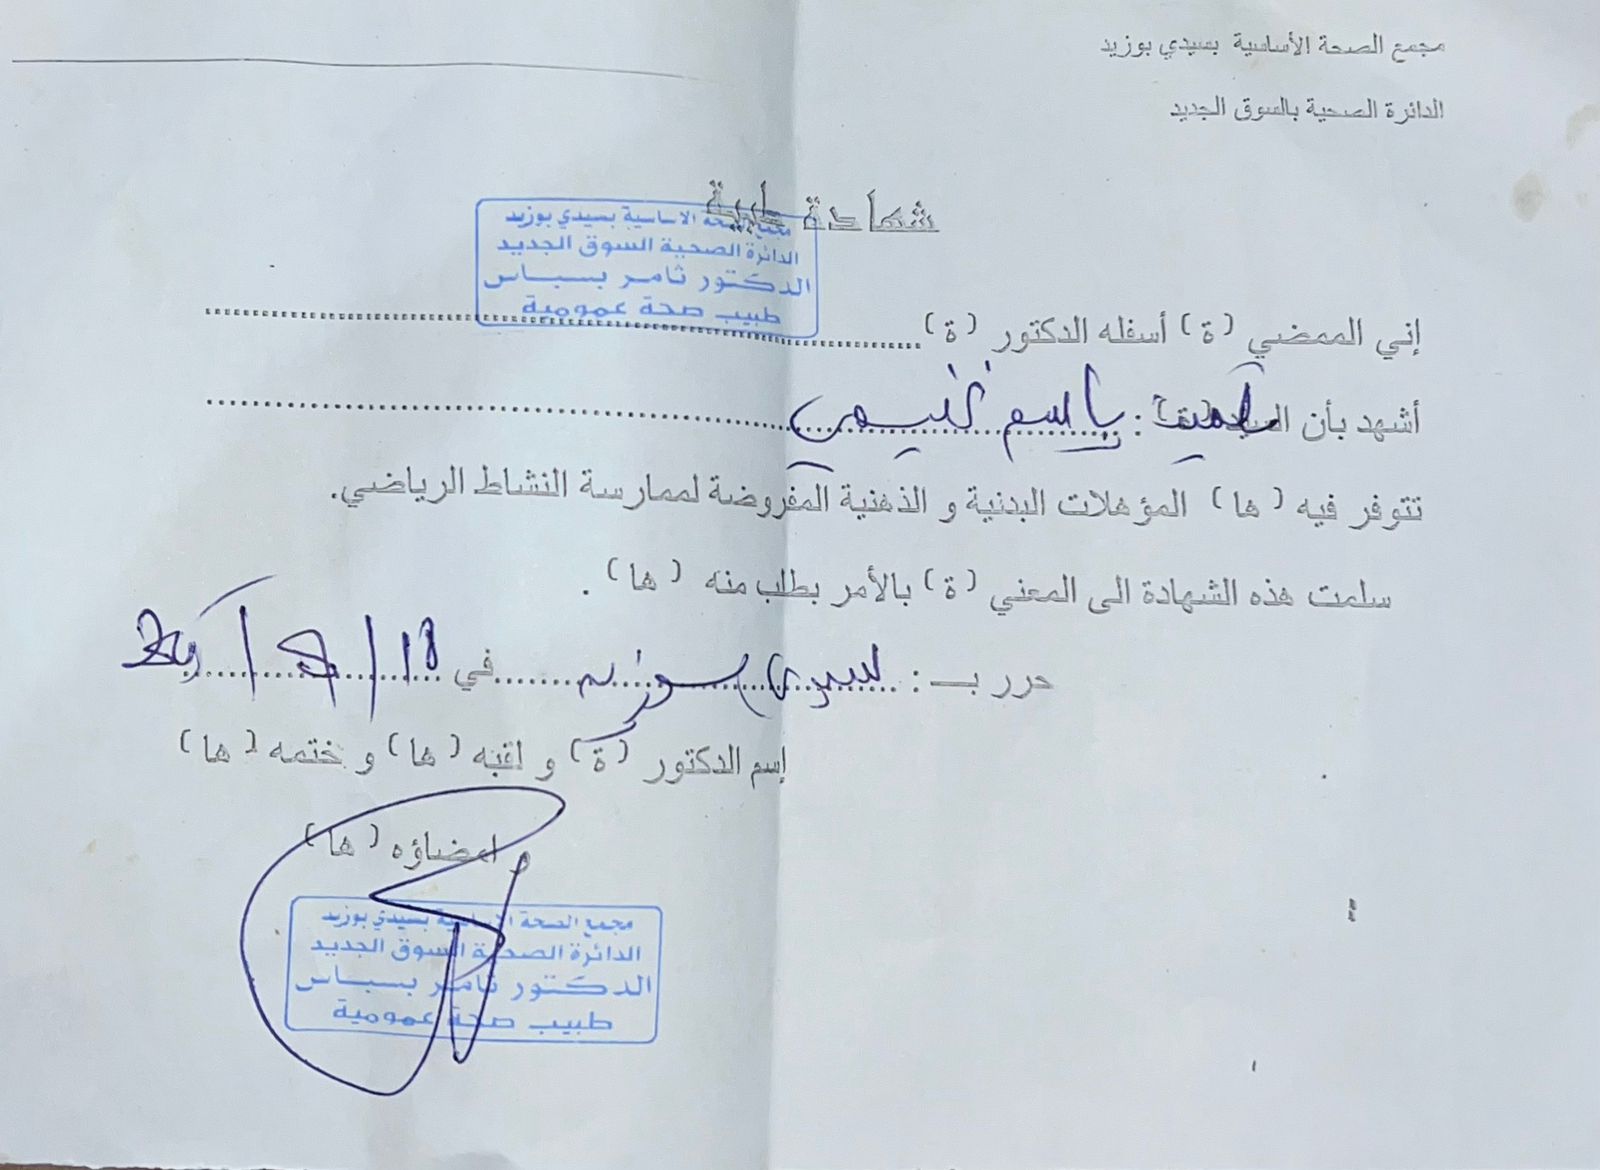 مجمع الصحة الأساسية بسيدي بوزيد
الدائرة الصحية بالسوق الجديد
شهادة طبية
مجمع الصحة الاساسية بسيدي بوزيد
الدائرة الصحية السوق الجديد
الدكتور ثامر بسباس
طبيب صحة عمومية
إني الممضي (ة) أسفله الدكتور (ة)
أشهد بأن : باسم
تتوفر فيه (ها) المؤهلات البدنية و الذهنية المفروضة لممارسة النشاط الرياضي.
سلمت هذه الشهادة الى المعني (ة) بالأمر بطلب منه (ها) .
حرر بـ : سيدي بوزيد في
إسم الدكتور (ة) و لقبه (ها) و ختمه (ها)
و امضاؤه (ها)
مجمع الصحة الاساسية بسيدي بوزيد
الدائرة الصحية السوق الجديد
الدكتور ثامر بسباس
طبيب صحة عمومية